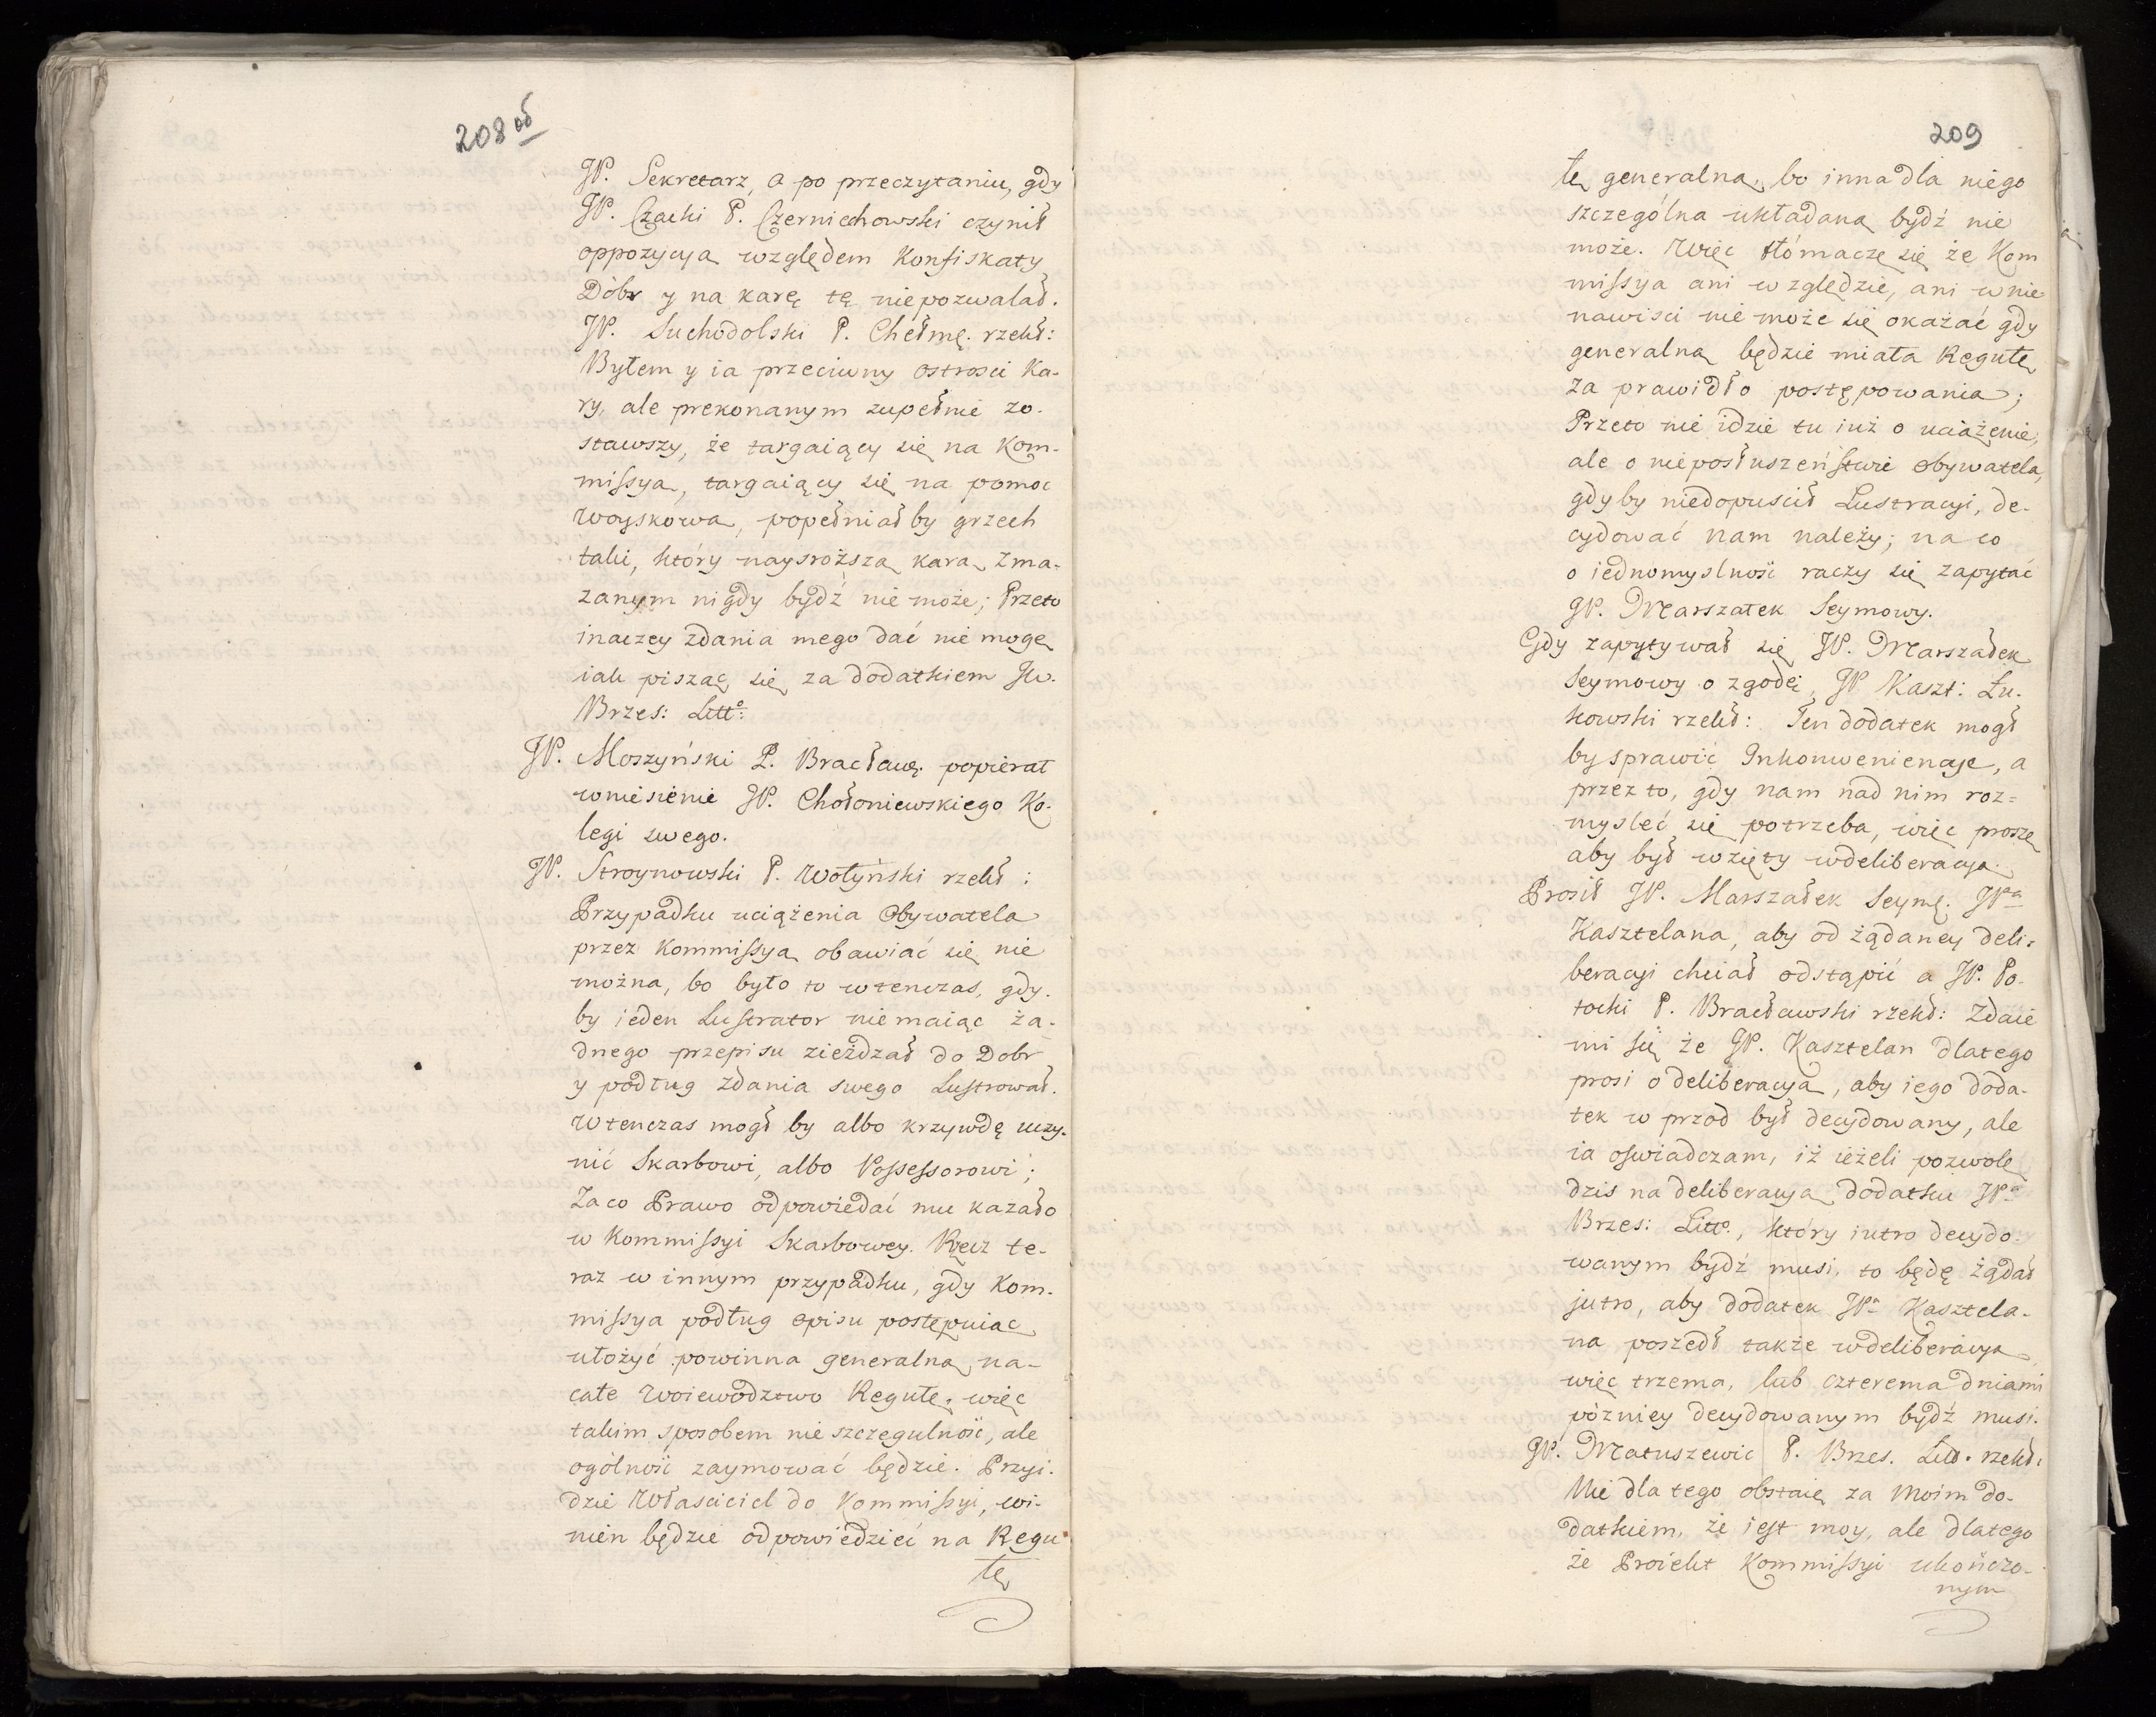 208 об
JP. Sekretarz, a po przeczytaniu, gdy
JP. Czacki P. Czerniechowski czynił
oppozycyą względem Konfiskaty
Dóbr y na karę tę niepozwalał.
JP. Suchodolski P. Chełmę. rzekł:
Byłem y ia przeciwny ostrosci Ka-
ry, ale prekonanym zupełnie zo-
stawszy, że targaiący się na Kom-
missyą, targaiący się na pomoc
woyskową, popełniałby grzech
taki, który naysroższą karą zma-
zanym nigdy bydź nie może; Przeto
inaczey zdania mego dać nie mogę
iak pisząc się za dodatkiem JW.
Brzes: Litto:
JP. Moszyński P. Bracławę. popierał
wniesienie JP. Chołoniewskiego Ko-
legi swego.
JP. Stroynowski P. Wołyński rzekł:
Przypadku uciążenia Obywatela
przez Kommissyą obawiać się nie
można, bo było to wtenczas, gdy-
by ieden Lustrator niemaiąc ża-
dnego przepisu zieżdzał do Dobr
y podług zdania swego Lustrował.
Wtenczas mogł by albo krzywdę uczy-
nić Skarbowi, albo Possessorowi;
Zaco Prawo odpowiedać mu kazało
w Kommissyi Skarbowey. Rzecz te-
raz w innym przypadku, gdy Kom-
missya podług opisu postępuiąc
ułożyć powinna generalną na-
całe Woiewodztwo Regułę, więc
takim sposobem nie szczegulność, ale
ogólność zaymować będzie. Przyi-
dzie Właściciel do Kommissyi, wi-
nien będzie odpowiedzieć na Regu
łę
209
łę generalną, bo inna dla niego
szczególna układaną bydź nie
może. Więc tłómaczę się że Kom
missya ani względzie, ani w nie
nawisci nie może się okazać gdy
generalną będzie miała Regułę
za prawidło postępowania;
Przeto nie idzie tu iuż o uciążenie,
ale o nieposłuszeństwie Obywatela,
gdyby niedopuscił Lustracyi, de-
cydować nam należy; na co
o iednomyslność raczy się zapytać
JP. Marszałek Seymowy.
Gdy zapytywał się JP. Marszałek
Seymowy o zgodę, JP Kaszt: Łu-
kowski rzekł: Ten dodatek mogł
by sprawić Inkonweniencye, a
przez to, gdy nam nad nim roz=
mysleć się potrzeba, więc proszę
aby był wzięty w deliberacyą.
Prosił JP. Marszałek Seymę. JPa
Kasztelana, aby od żądaney deli-
beracyi chciał odstąpić a JP. Po-
tocki P. Bracławski rzekł: Zdaie
mi się że JP. Kasztelan dlatego
prosi o deliberacyą, aby iego doda-
tek w przod był decydowany, ale
ia oswiadczam, iż ieżeli pozwolę
dzis na deliberacyą dodatku JPa
Brzes: Litto., który iutro decydo-
wanym bydź musi, to będę żądał
jutro, aby dodatek JPa Kasztela-
na poszedł także w deliberacyą
więc trzema, lub czterema dniami
pózniey decydowanym bydź musi.
JP. Matuszewic P. Brzes. Litt. rzekł:
Nie dla tego obstaię za moim do-
datkiem, że iest moy, ale dlatego
że Proiekt Kommissyi ukończo-
nym